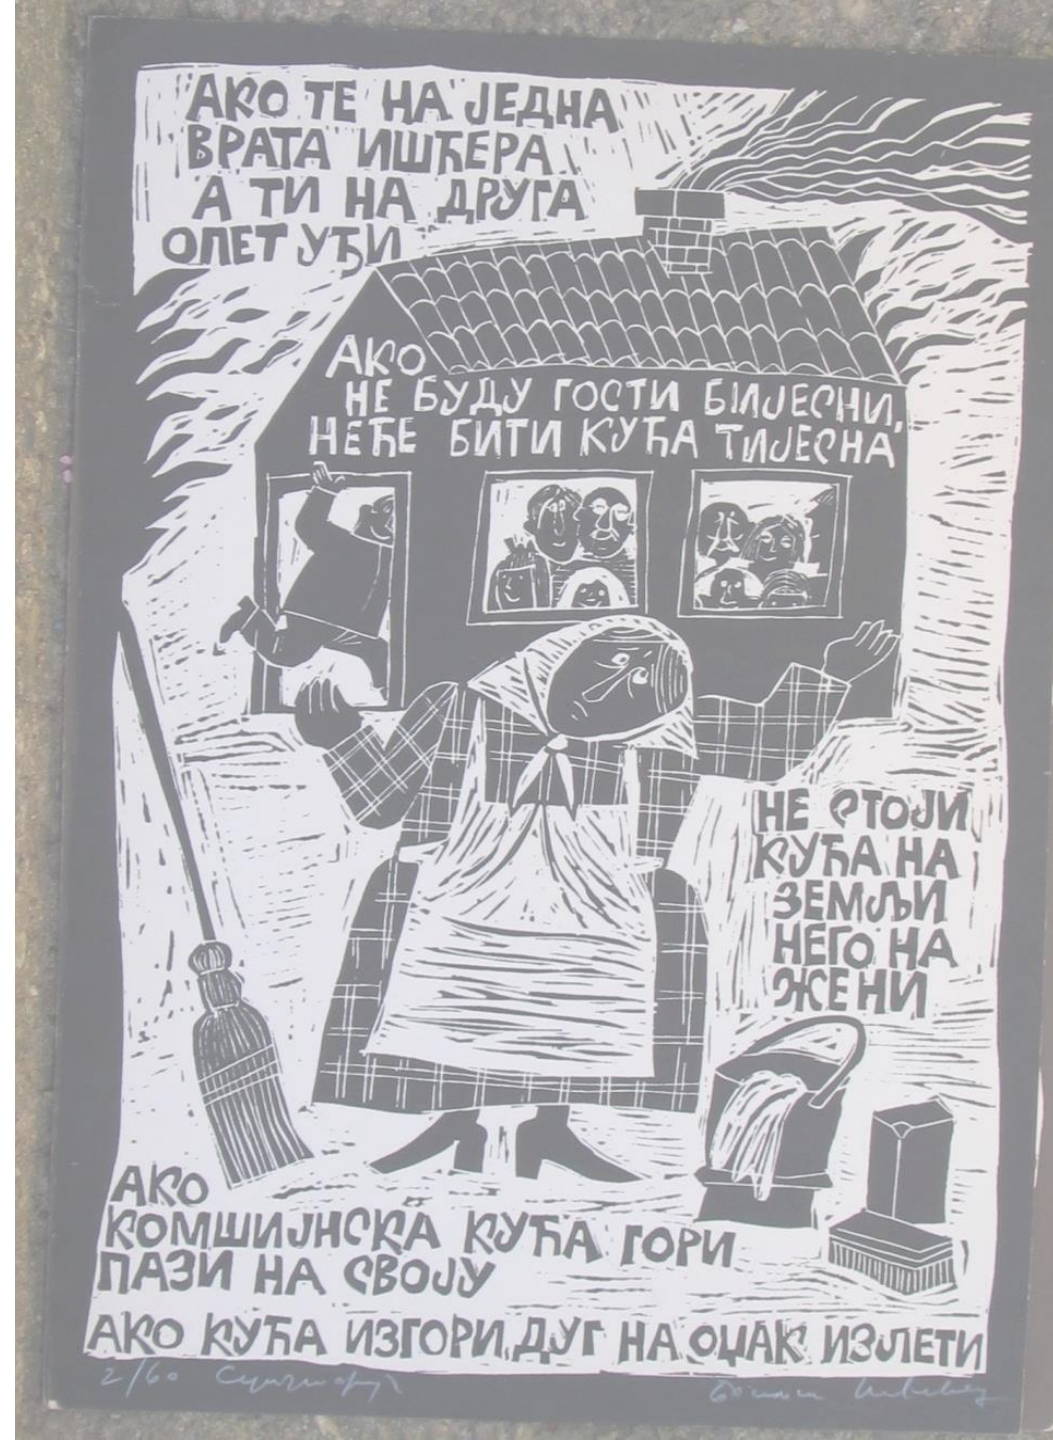 АКО ТЕ НА ЈЕДНА
ВРАТА ИШЋЕРА
А ТИ НА ДРУГА
ОПЕТ УЂИ
АКО
НЕ БУДУ ГОСТИ БИЈЕСНИ,
НЕЋЕ БИТИ КУЋА ТИЈЕСНА
НЕ СТОЈИ
КУЋА НА
ЗЕМЉИ
НЕГО НА
ЖЕНИ
АКО
КОМШИЈНСКА КУЋА ГОРИ
ПАЗИ НА СВОЈУ
АКО КУЋА ИЗГОРИ, ДУГ НА ОЏАК ИЗЛЕТИ
2/60